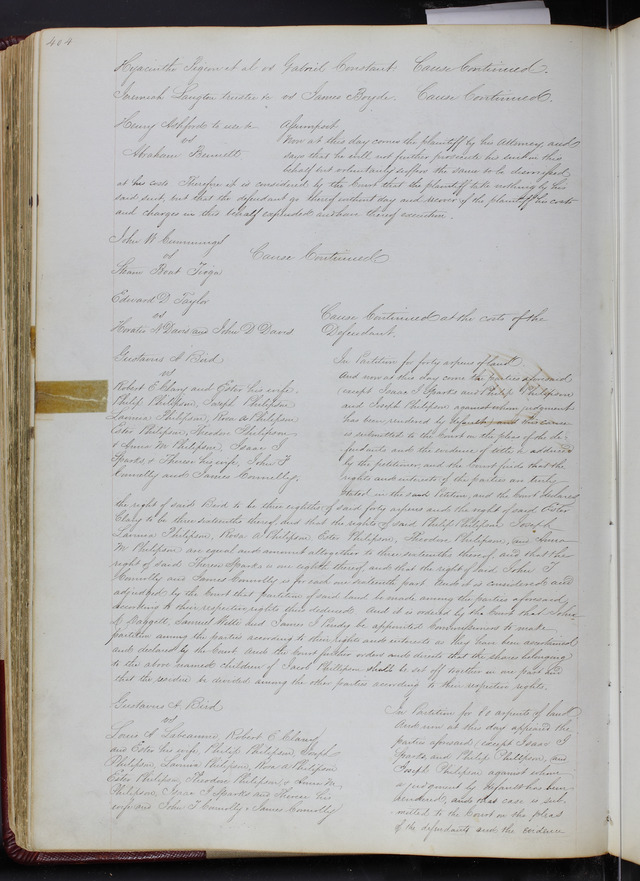 404
Hyacinthe Pigeon et al vs Gabriel Constant. Cause Continued.
Jeremiah Langton trustee &c vs James Boyde. Cause Continued.
Henry Ashford to use &c
vs
Abraham Burnett
Assumpsit
Now at this day comes the plaintiff by his Attorney, and
says that he will not further prosecute his suit in this
behalf but voluntarily suffers the same to be dismissed
at his costs Therefore it is considered by the Court that the plaintiff take nothing by his
said suit, but that the defendant go thereof without day and recover of the plaintiff his costs
and charges in this behalf expended and have thereof execution.
John W. Cummings
vs
Steam Boat Tioga
Cause Continued
Edward D. Taylor
vs
Horatio N Davis and John D Davis
Cause Continued at the costs of the
Defendant.
Gustavus A Bird
vs
Robert E Clary and Ester his wife.
Philip Philipson, Joseph Philipson
Lavinia Philipson, Rosa A Philipson
Ester Philipson, Theodore Philipson
& Anna M Philipson, Isaac I
Sparks, & Therese his wife, John T
Connolly and James Connolly.
In Partition for forty arpens of land
And now at this day come the parties aforesaid
except Isaac I Sparks and Philip Philipson
and Joseph Philipson against whom judgment
has been rendered by default, and this cause
is submitted to the Court on the pleas of the de-
fendants and the evidence of title adduced
by the petitioner, and the Court finds that the
rights and interests of the parties are truly
stated in the said Petition, and the Court declares
the right of said Bird to be three eighths of said forty arpens and the right of said Ester
Clary to be three sixteenths thereof, and that the rights of said Philip Philipson Joseph
Lavinia Philipson, Rosa A Philipson, Ester Philipson, Theodore Philipson, and Anna
M Philipson are equal and amount alltogether to three sixteenths thereof, and that the
right of said Therese Sparks is one eighth thereof and that the right of said John T
Connolly and James Connolly is for each one sixteenth part. And it is considered and
adjudged by the Court that partition of said land be made among the parties aforesaid,
according to their respective rights thus declared. And it is ordered by the Court that John
D Daggett, Samuel Willi and James S be appointed Commissioners to make
partition among the parties according to their rights and interests as they have been ascertained
and declared by the Court. And the Court further orders and directs that the shares belonging
to the above named children of Jacob Phillipson shall be set off together in one part and
that the residue be divided among the other parties according to their respective rights.
Gustavus A. Bird
vs
Louis A Labeaume, Robert E. Clary
and Ester his wife, Philip Philipson, Joseph
Philipson, Lavinia Philipson, Rosa A Philipson
Ester Philipson, Theodore Philipson & Anna M.
Philipson, Isaac I Sparks and Therese his
wife and John T Connolly & James Connolly
In Partition for 80 arpents of land
And now at this day appeared the
parties aforesaid except Isaac I
Sparks, and Philip Philipson, and
Joseph Philipson against whom
a judgment by default has been
rendered, and this case is sub-
mitted to the Court on the pleas
of the defendants and the evidence